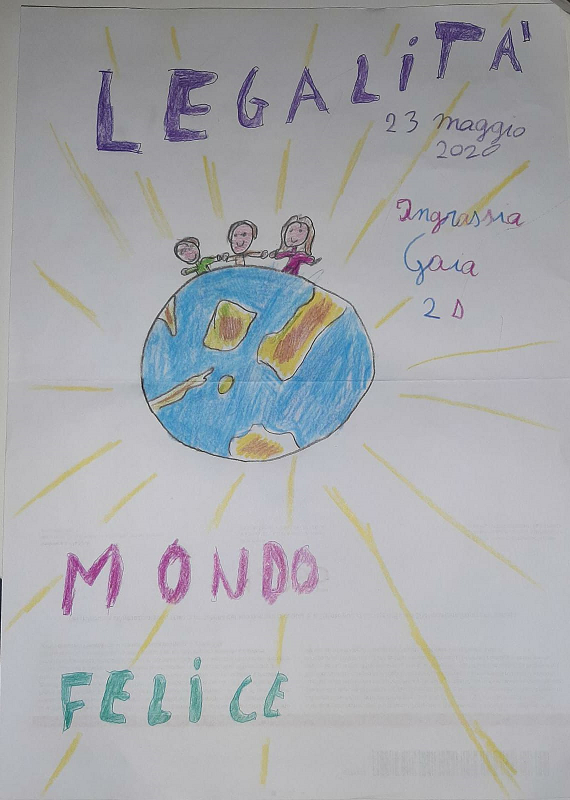 LEGALITÀ
23 maggio
2020
Ingrassia
Gaia
2 D
MONDO
FELICE